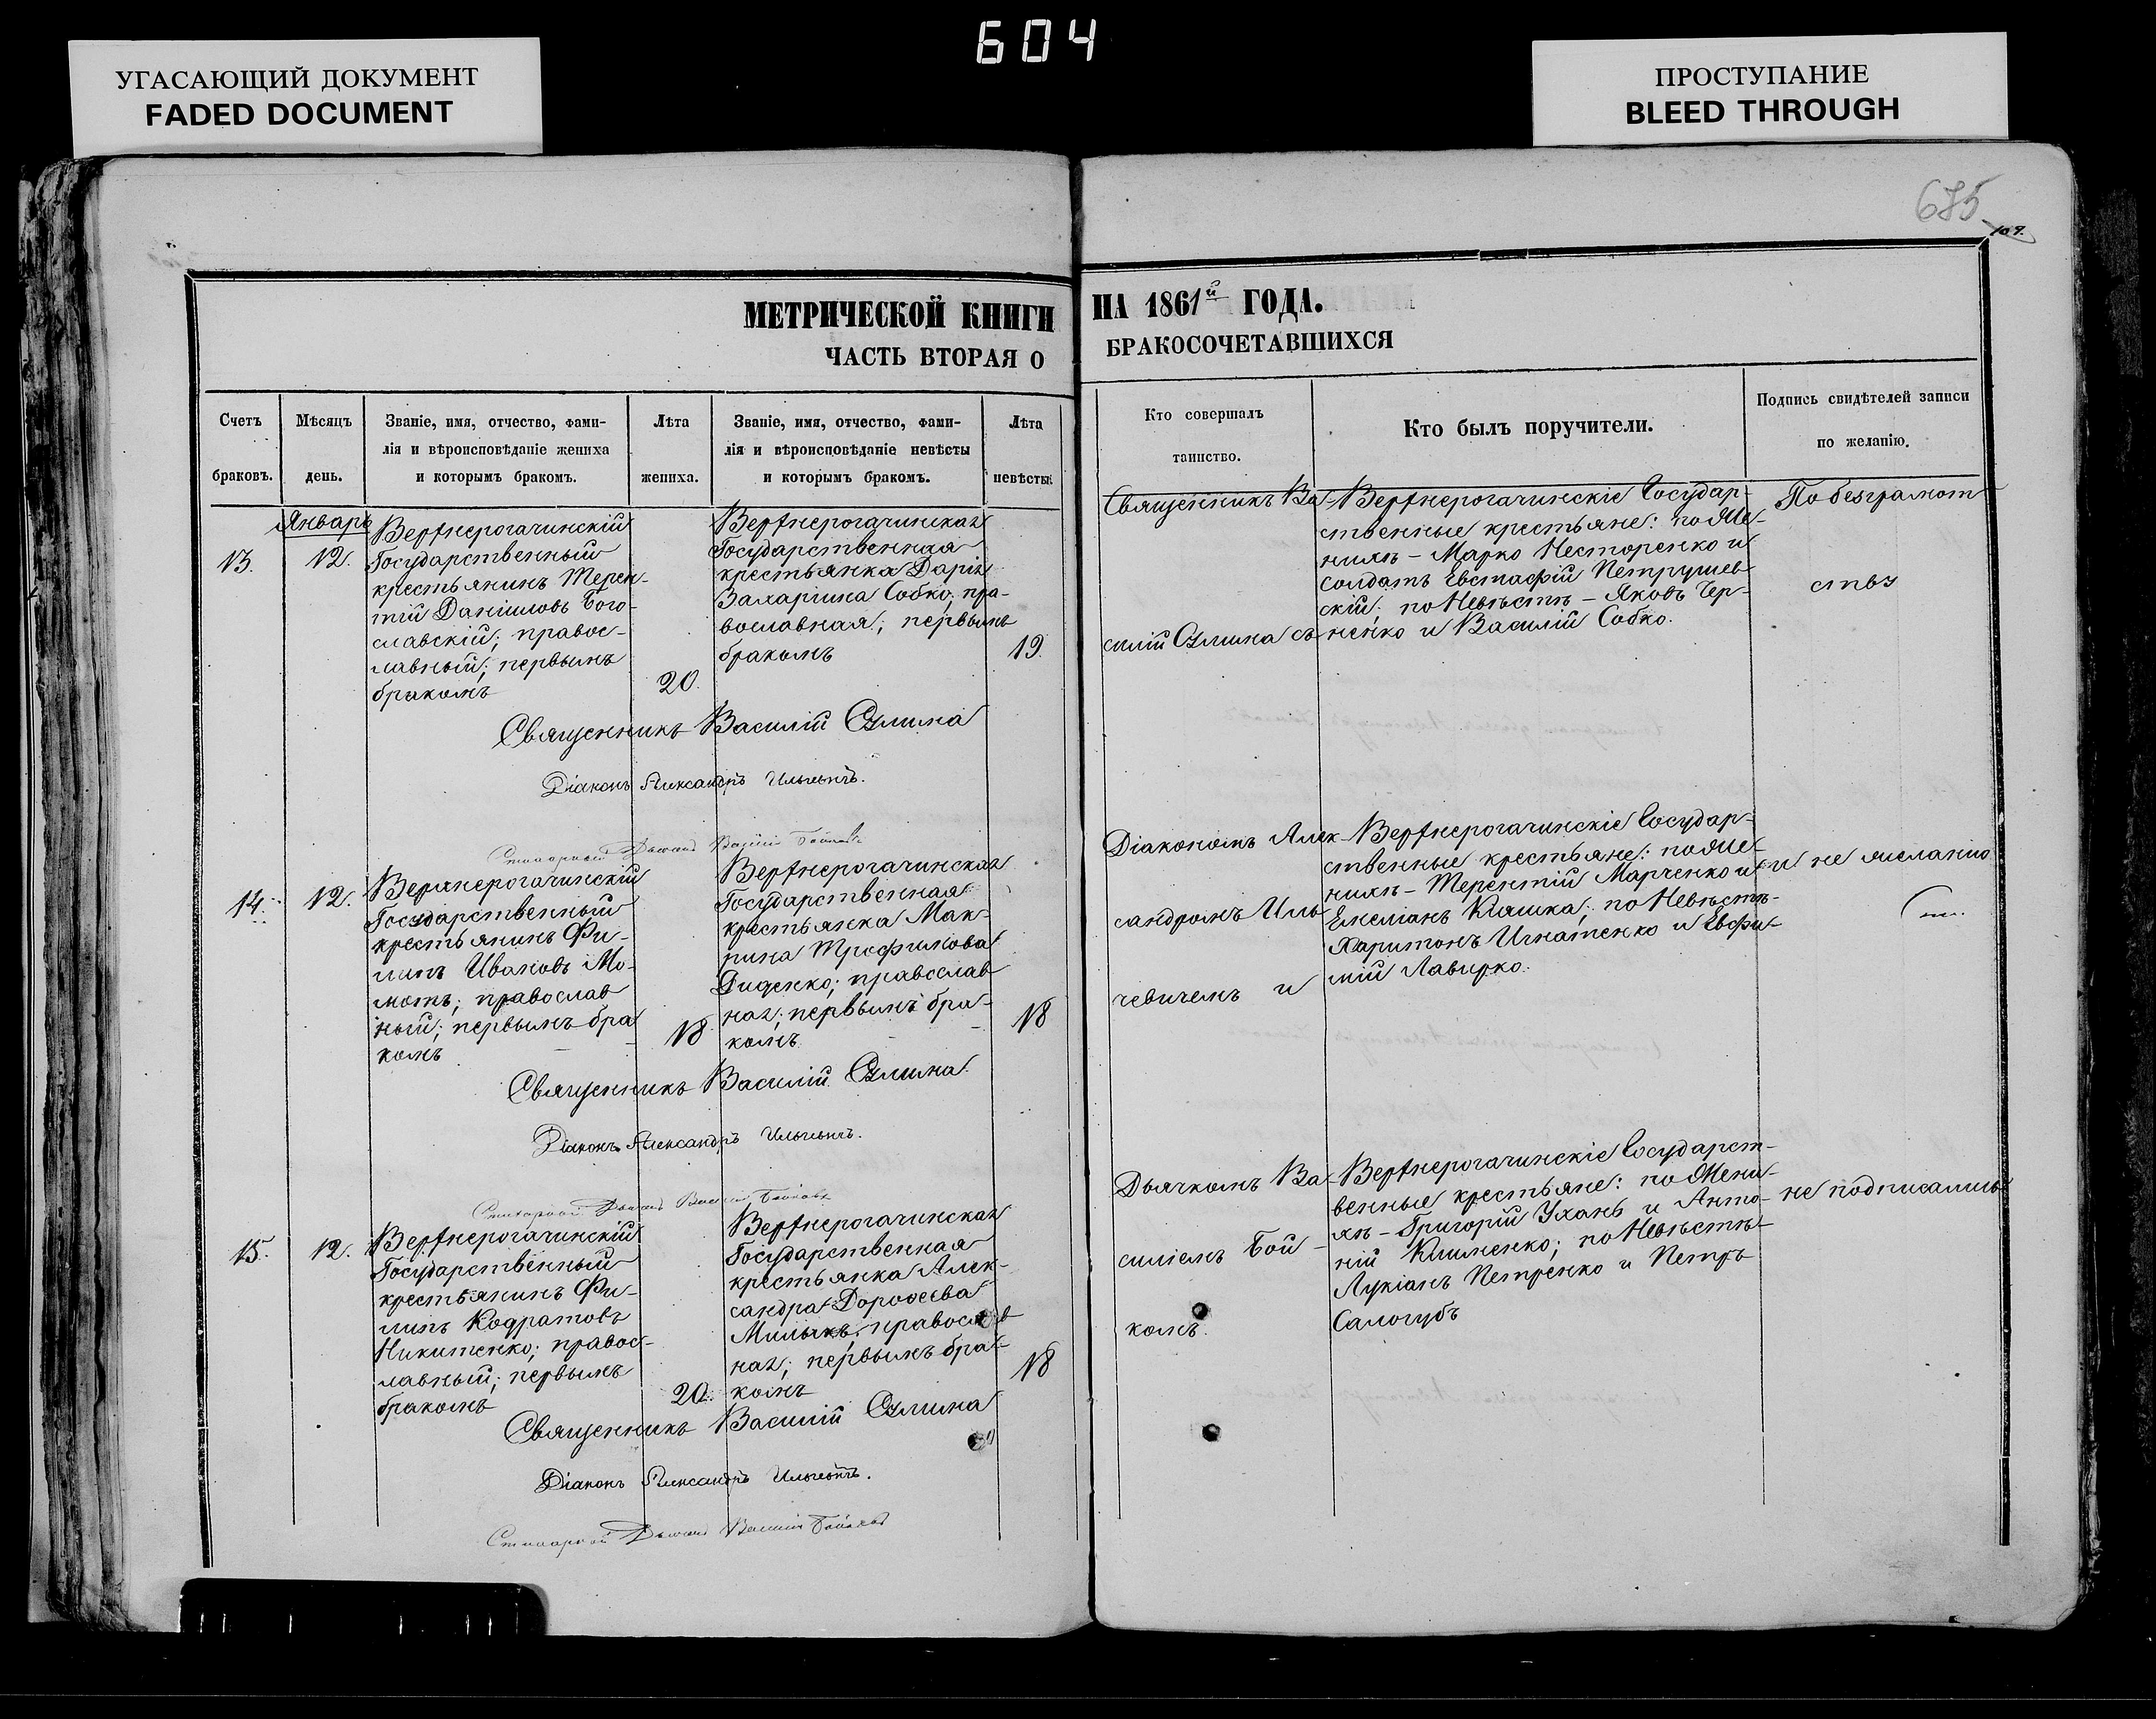 604
УГАСАЮЩИЙ ДОКУМЕНТ
FADED DOCUMENT
ПРОСТУПАНИЕ
BLEED THROUGH
685
109.
МЕТРИЧЕСКОЙ КНИГИ НА 1861й ГОДА.
ЧАСТЬ ВТОРАЯ О БРАКОСОЧЕТАВШИХСЯ
Счетъ
браковъ.
Мѣсяцъ
день.
Званіе, имя, отчество, фами-
лія и вѣроисповѣданіе жениха
и которымъ бракомъ.
Лѣта
жениха.
Званіе, имя, отчество, фами-
лія и вѣроисповѣданіе невѣсты
и которымъ бракомъ.
Лѣта
невѣсты.
Кто совершалъ
таинство.
Кто былъ поручители.
Подпись свидѣтелей записи
по желанію.
Январь
13.
12.
Верхнерогачинскій
Государственный
крестьянинъ Терен-
тій Даніиловъ Бого-
славскій; правос-
лавный; первымъ
бракомъ
20.
Верхнерогачинская
Государственная
крестьянка Дарія
Захаріина Собко; пра-
вославная; первымъ
бракомъ
19.
Священникъ Ва-
силій Слина съ
Верхнерогачинскіе Государ-
ственные крестьяне: по Же-
нихѣ - Марко Несторенко и
солдатъ Евстафій Петрушев-
скій; по Невѣстѣ - Яковъ Чер-
ненко и Василій Собко.
По безграмот
ству
Священникъ Василій Слина
Діаконъ Александръ Ильичевичъ.
Стихарный Дьячокъ Василій Бойковъ
14.
12.
Верхнерогачинскій
Государственный
крестьянинъ Фи-
липъ Ивановъ Мо-
мотъ; православ
ный; первымъ бра
комъ
18
Верхнерогачинская
Государственная
крестьянка Мак-
рина Трофимова
Диденко; православ
ная; первымъ бра-
комъ
18
Діакономъ Алек-
сандромъ Иль-
чевичемъ и
Верхнерогачинскіе Государ-
ственные крестьяне: по Же-
нихѣ - Терентій Марченко и
Емеліанъ Кияшка; по Невѣстѣ-
Харитонъ Игнатенко и Евфи-
мій Лавирко.
и не желанію
Священникъ Василій Слина
Діаконъ Александръ Ильичевичъ.
Стихарный Дьячокъ Василій Бойковъ
15.
12.
Верхнерогачинскій
Государственный
крестьянинъ Фи-
липъ Кодратовъ
Никитенко; правос-
лавный; первымъ
бракомъ
20.
Верхнерогачинская
Государственная
крестьянка Алек-
сандра Дороѳеева
православ
ная; первымъ бра-
комъ
18
Дьячкомъ Ва-
силіемъ Бой-
комъ.
Верхнерогачинскіе Государст-
венные крестьяне: по Жени-
хѣ - Григорій Ухань и Анто-
ній Клименко; по Невѣстѣ-
Лукіанъ Петренко и Петръ
Салогубъ
не подписались
Священникъ Василій Слина
Діаконъ Александръ Ильичевичъ.
Стихарный Дьячокъ Василій Бойковъ